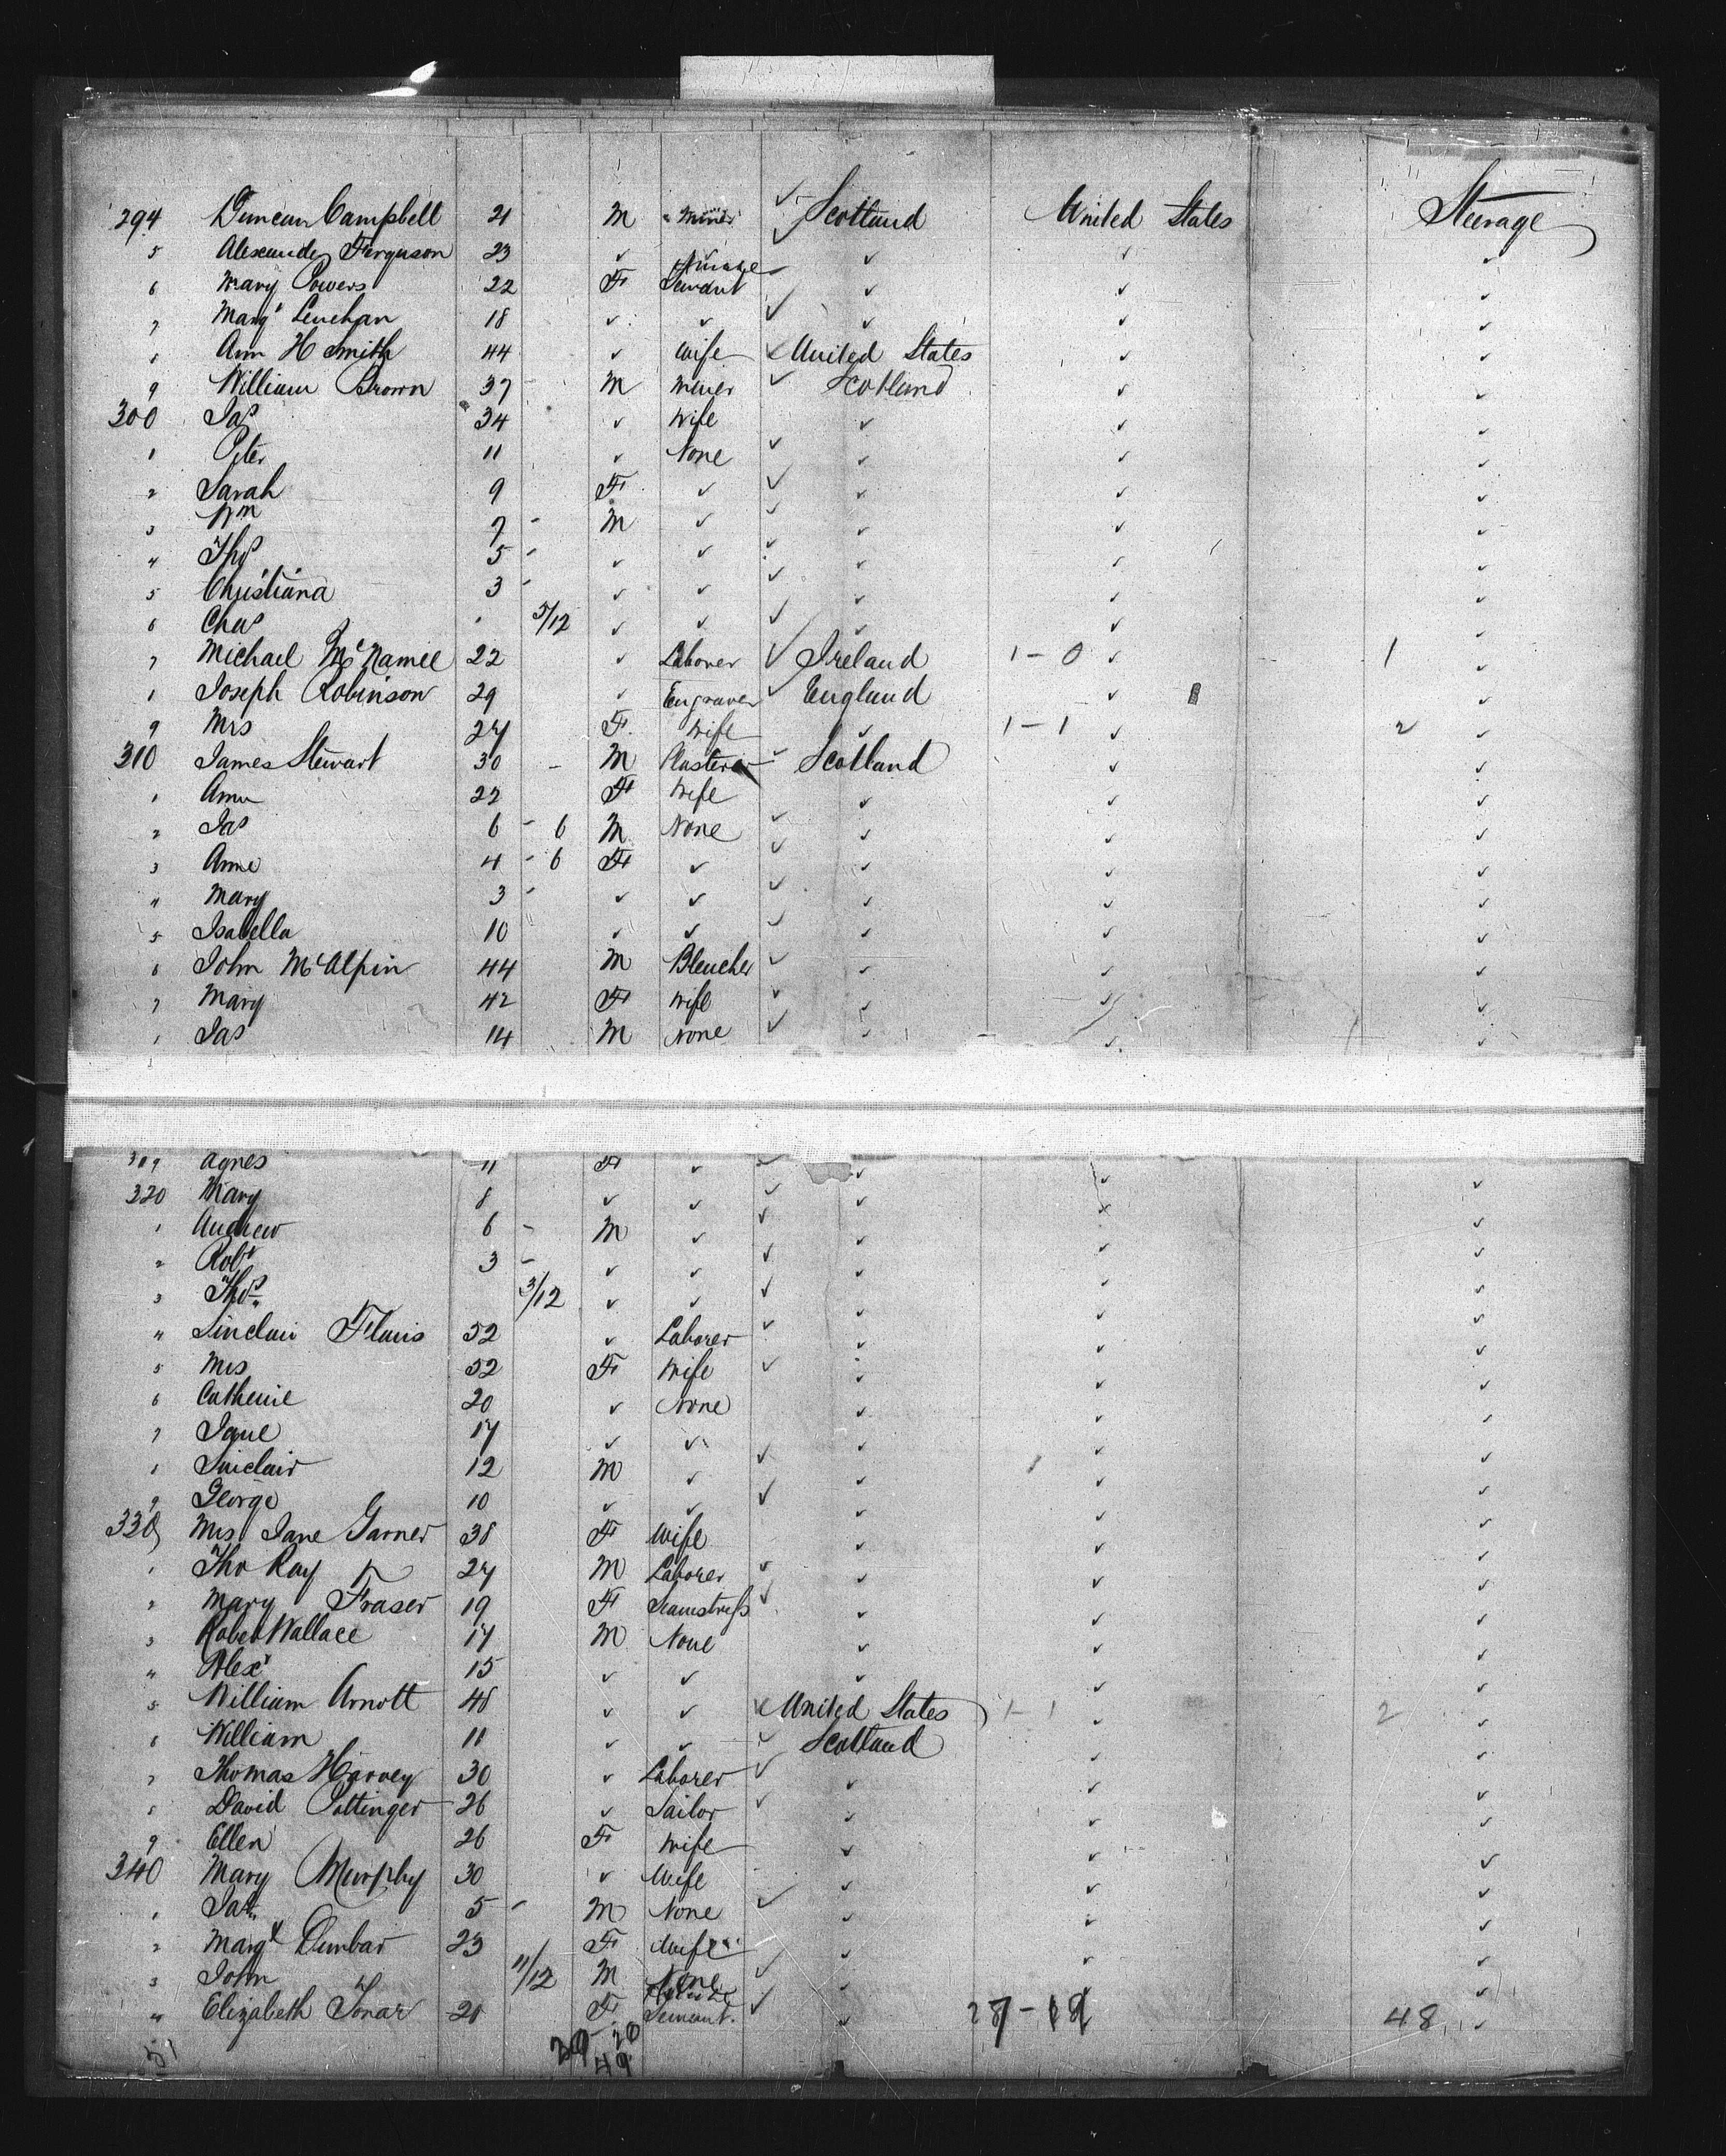 294 Duncan Campbell 21 M Miner ✓ Scotland United States Steerage
5 Alexander Ferguson 23 ✓ ✓ ✓ ✓ ✓ ✓
6 Mary Powers 22 F Servant ✓ ✓ ✓
7 Margt Lenehan 18 ✓ ✓ ✓ ✓ ✓ ✓
8 Ann H Smith 44 ✓ Wife ✓ United States ✓ ✓
9 William Brown 37 - M Miner ✓ Scotland ✓ ✓
300 Jas 34 ✓ Wife ✓ ✓ ✓
1 Peter 11 ✓ None ✓ ✓ ✓ ✓
2 Sarah 9 F ✓ ✓ ✓ ✓ ✓
3 Wm 7 - M ✓ ✓ ✓ ✓ ✓
4 Thos 5 - ✓ ✓ ✓ ✓ ✓ ✓
5 Christiana 3 - ✓ ✓ ✓ ✓ ✓ ✓
6 Chas 5/12 ✓ ✓ ✓ ✓ ✓ ✓
7 Michael McNamee 22 ✓ Laborer ✓ Ireland 1-0 ✓ 1 ✓
8 Joseph Robinson 29 ✓ Engraver ✓ England ✓ ✓
9 Mrs 27 F Wife ✓ 1-1 ✓ 2 ✓
310 James Stewart 30 - M Plasterer ✓ Scotland ✓ ✓
1 Ann 22 F Wife ✓ ✓ ✓
2 Jas 6 - 6 M None ✓ ✓ ✓ ✓
3 Anne 4 - 6 F ✓ ✓ ✓ ✓ ✓
4 Mary 3 - ✓ ✓ ✓ ✓ ✓ ✓
5 Isabella 10 " ✓ ✓ ✓ ✓ ✓ ✓
6 John McAlpin 44 M Bleacher ✓ ✓ ✓ ✓
7 Mary 42 F Wife ✓ ✓ ✓ ✓
8 Jas 14 M None ✓ ✓ ✓ ✓
309 Agnes 11 F ✓ ✓ ✓ ✓ ✓
320 Mary 8 ✓ ✓ ✓ ✓ ✓ ✓
1 Andrew 6 - M ✓ ✓ ✓ ✓ ✓
2 Robt 3 - ✓ ✓ ✓ ✓ ✓ ✓
3 Thos 3/12 ✓ ✓ ✓ ✓ ✓ ✓
4 Sinclair 52 ✓ Laborer ✓ ✓ ✓ ✓
5 Mrs 52 F Wife ✓ ✓ ✓ ✓
6 Catherine 20 ✓ None ✓ ✓ ✓
7 Jane 17 ✓ ✓ ✓ ✓ ✓
8 Sinclair 12 M ✓ ✓ ✓ ✓ ✓
9 George 10 ✓ ✓ ✓ ✓ ✓ ✓
330 Mrs Jane Garner 38 F Wife ✓ ✓ ✓
1 Tho Ray 27 M Laborer ✓ ✓ ✓ ✓
2 Mary Fraser 19 F Seamstress ✓ ✓ ✓ ✓
3 Robert Wallace 17 M None ✓ ✓ ✓
4 Alexr 15 ✓ ✓ ✓ ✓ ✓
5 William Arnott 48 ✓ ✓ ✓ United States 1-1 ✓ 2 ✓
6 William 11 ✓ ✓ ✓ Scotland ✓ ✓
7 Thomas Harvey 30 ✓ Laborer ✓ ✓ ✓ ✓
8 David Pottinger 26 ✓ Sailor ✓ ✓ ✓ ✓
9 Ellen 26 F Wife ✓ ✓ ✓
340 Mary Murphy 30 ✓ Wife ✓ ✓ ✓
1 Jas 5 - M None ✓ ✓ ✓ ✓
2 Margt Dunbar 23 F Wife ✓ ✓ ✓
3 John 11/12 M None ✓ ✓ ✓ ✓
4 Elizabeth 20 F Servant ✓ ✓ ✓ 48 ✓
29 - 20
49